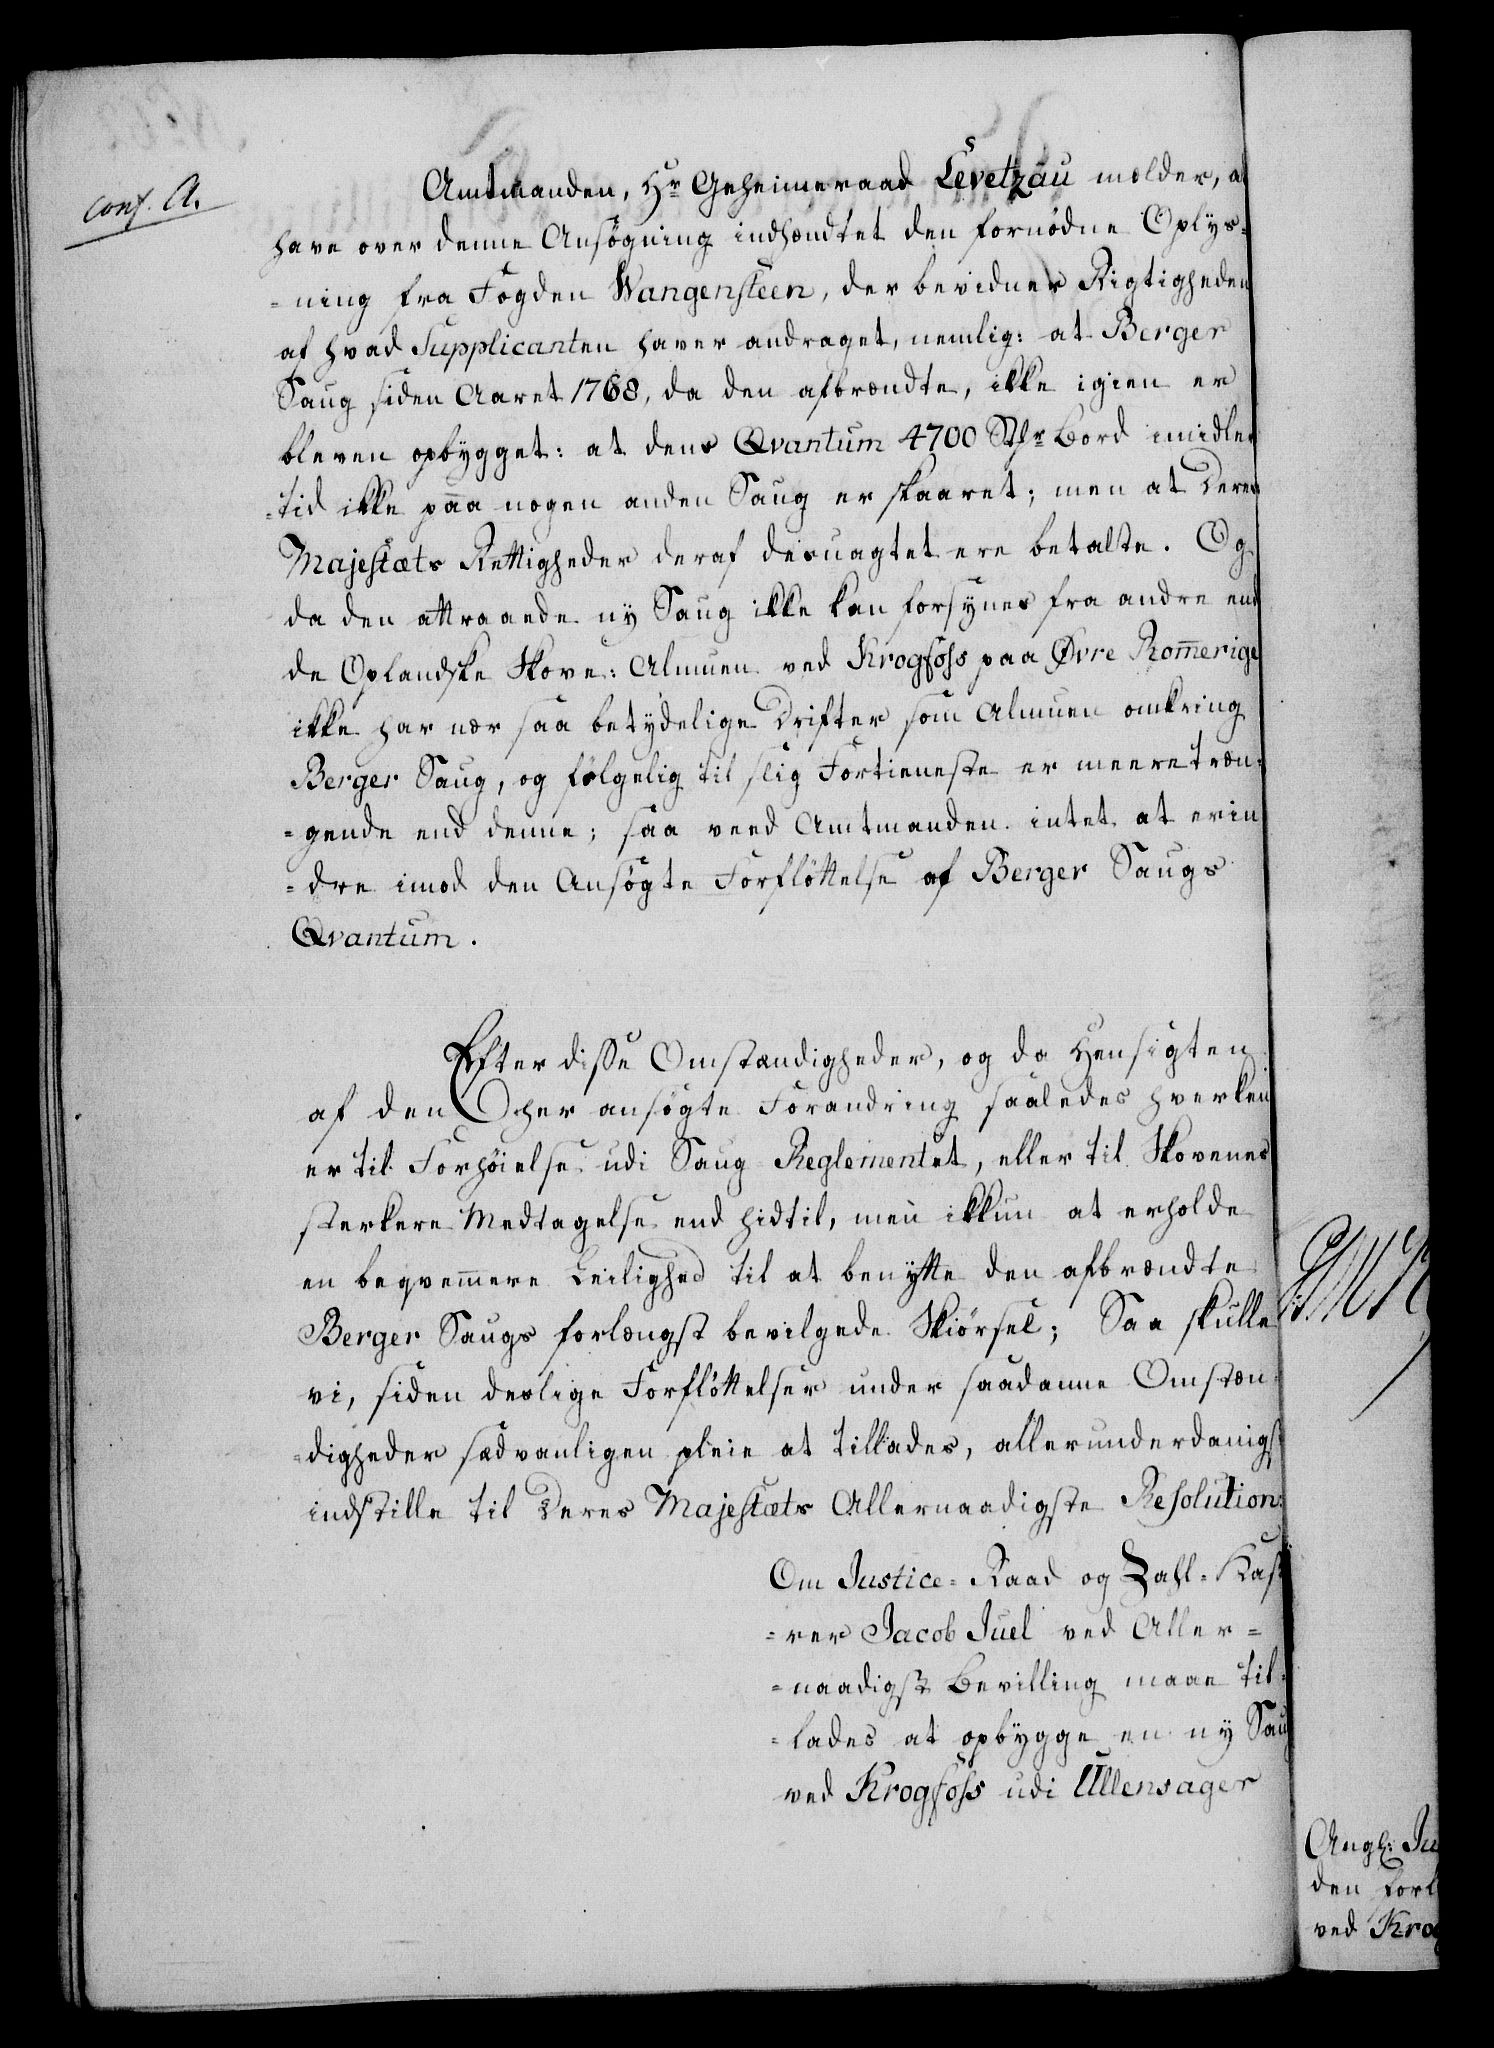 conf. A.
Amtmanden, Hr Geheimeraad Levetzau melder, at
have over denne Ansøgning indhændtet den fornødne Oplys-
-ning fra Fogden Wangensteen, der bevidner Rigtigheden
af hvad Supplicanten haver andraget, nemlig: at Berger
Saug siden Aaret 1768, da den afbrændte, ikke igien er
bleven opbygget: at dens Qvantum 4700 Bord imidler
-tid ikke paa nogen anden Saug er skaaret; men at Deres
Majestæts Rettigheder deraf desuagtet ere betalte. Og
da den attraaede ny Saug ikke kan forsynes fra andre end
de Oplandske Skove: Almuen ved Krogfoss paa Øvre Rom̅erige
ikke har nær saa betydelige Drifter som Almuen omkring
Berger Saug, og følgelig til slig Fortieneste er meere træn-
-gende end denne; saa veed Amtmanden intet at erin
-dre imod den Ansøgte Forfløttelse af Berger Saugs
Qvantum.
Efter disse Omstændigheder, og da Hensigten
af den her ansøgte Forandring saaledes hverken
er til Forhøielse udi Saug Reglementet, eller til Skovenes
sterkere Medtagelse end hidtil, men ikkun at erholde
en beqvem̅ere Leilighed til at benytte den afbrændte
Berger Saugs forlængst bevilgede Skiørsel; Saa skulle
vi, siden deslige Forfløttelser under saadanne Omstæn-
-digheder sædvanligen pleie at tillades, allerunderdanigst
indstille til Deres Majestæts Allernaadigste Resolution:
Om Justice-Raad og Zahl-Kas
-rer Jacob Juel ved Aller-
-naadigst Bevilling maae til-
-lades at opbygge en ny Saug
ved Krogfoss udi Ullensager
Angl: Ju
den forl
ved Krog